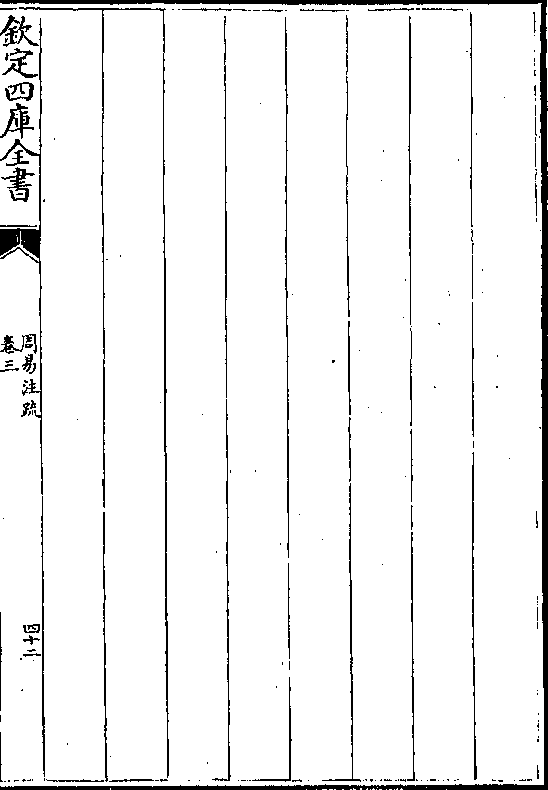 欽定四庫全書
周易注疏
卷三
四十二